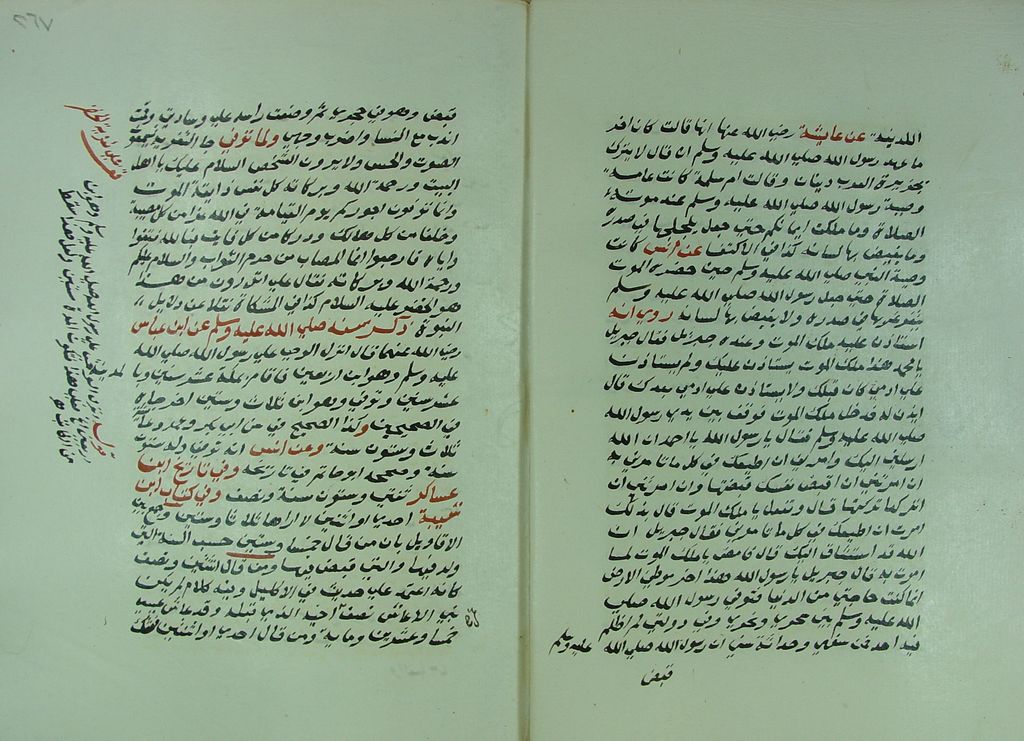 المدينة عن عائشة رضي الله عنها انها قالت كان اخر
ما عهد رسول الله صلى الله عليه وسلم ان قال لا يترك
بجزيرة العرب دينان وقالت ام سلمة كانت عامة
وصية رسول الله صلى الله عليه وسلم عند موته
الصلاة وما ملكت ايمانكم حتى جعل يلجلجها في صدره
وما يفيض بها لسانه كذا في الاكتفا عن انس كانت
وصية النبي صلى الله عليه وسلم حين حضره الموت
الصلاة حتى جعل رسول الله صلى الله عليه وسلم
يغرغر بها في صدره ولا يفيض بها لسانه روي انه
استاذن عليه ملك الموت وعنده جبرئل فقال جبريل
يا محمد هذا ملك الموت يستاذن عليك ولم يستاذن
على ادمي كان قبلك ولا يستاذن على ادمي بعدك قال
ايذن له فدخل ملك الموت فوقف بين يدي رسول الله
صلى الله عليه وسلم فقال يا رسول الله يا احمد ان الله
ارسلني اليك وامرني ان اطيعك في كل ما تامرني به
ان امرتني ان اقبض نفسك قبضتها وان امرتني ان
اتركها تركتها قال وتفعل يا ملك الموت قال بذلك
امرت ان اطيعك في كل ما تامرني فقال جبريل ان
الله قد اشتاق اليك قال فامض يا ملك الموت لما
امرت به قال جبريل يا رسول الله هذا اخر موطئي الارض
انما كنت حاجتي من الدنيا فتوفي رسول الله صلى
الله عليه وسلم بين سحري ونحري وفي دولتي لم اظلم
فيه احدا فمن سفهي وحداثة سني ان رسول الله صلى الله عليه وسلم
قبض
قبض وهو في حجري ثم وضعت راسه على وسادة وقمت
اندب مع النسا واضرب وجهي ولما توفي جا التعزية يسمعون
الصوت والحس ولا يرون الشخص السلام عليك يا اهل
البيت ورحمة الله وبركاته كل نفس ذايقة الموت
وانما توفون اجوركم يوم القيامة في الله عزا من كل مصيبة
وخلفا من كل هالك ودركا من كل فايت فبالله فثقوا
واياه فارجوا انما المصاب من حرم الثواب والسلام عليكم
ورحمة الله وبركاته فقال علي اتدرون من هذا
هو الخضر عليه السلام كذا في المشكاة نقلا عن دلايل
النبوة ذكر سنه صلى الله عليه وسلم عن ابن عباس
رضي الله عنهما قال انزل الوحي على رسول الله صلى الله
عليه وسلم وهو ابن اربعين فاقام بمكة عشر سنين وبا
لمدينة
عشر سنين وتوفي وهو ابن ثلاث وستين اخرجاه
في الصحيحين وكذا الصحيح في سن ابي بكر وعمر وعلي
ثلاث وستون سنة وعن انس انه توفي وله ستون
سنة وصححه ابو حاتم في تاريخه وفي تاريخ ابن
عساكر ثنتي وستون سنة ونصف وفي كتاب ابن
شيبة احدى او اثنتين لا اراها ثلاثا وستين وجمع بين
الاقاويل بان من قال خمسا وستين حسب السنة التي
ولد فيها والتي قبض فيها ومن قال اثنتين ونصف
كانه اعتمد على حديث في الاكليل وفيه كلام لم يكن
نبي الا عاش نصف اخيه الذي قبله وقد عاش عيسى
خمسا وعشرين وماية ومن قال احدى او اثنتين فشك